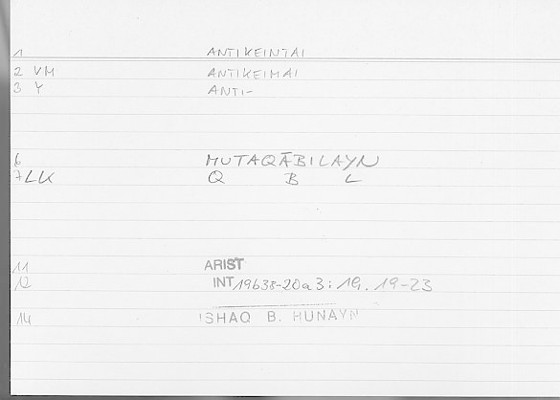 1 ANTIKEINTAI
2 VM ANTIKEIMAI
3 Y ANTI-
6 MUTAQĀBILAYN
7 LK Q B L
11 ARIST
12 INT 19b38-20a3: 19. 19-23
14 ISHAQ B. HUNAYN